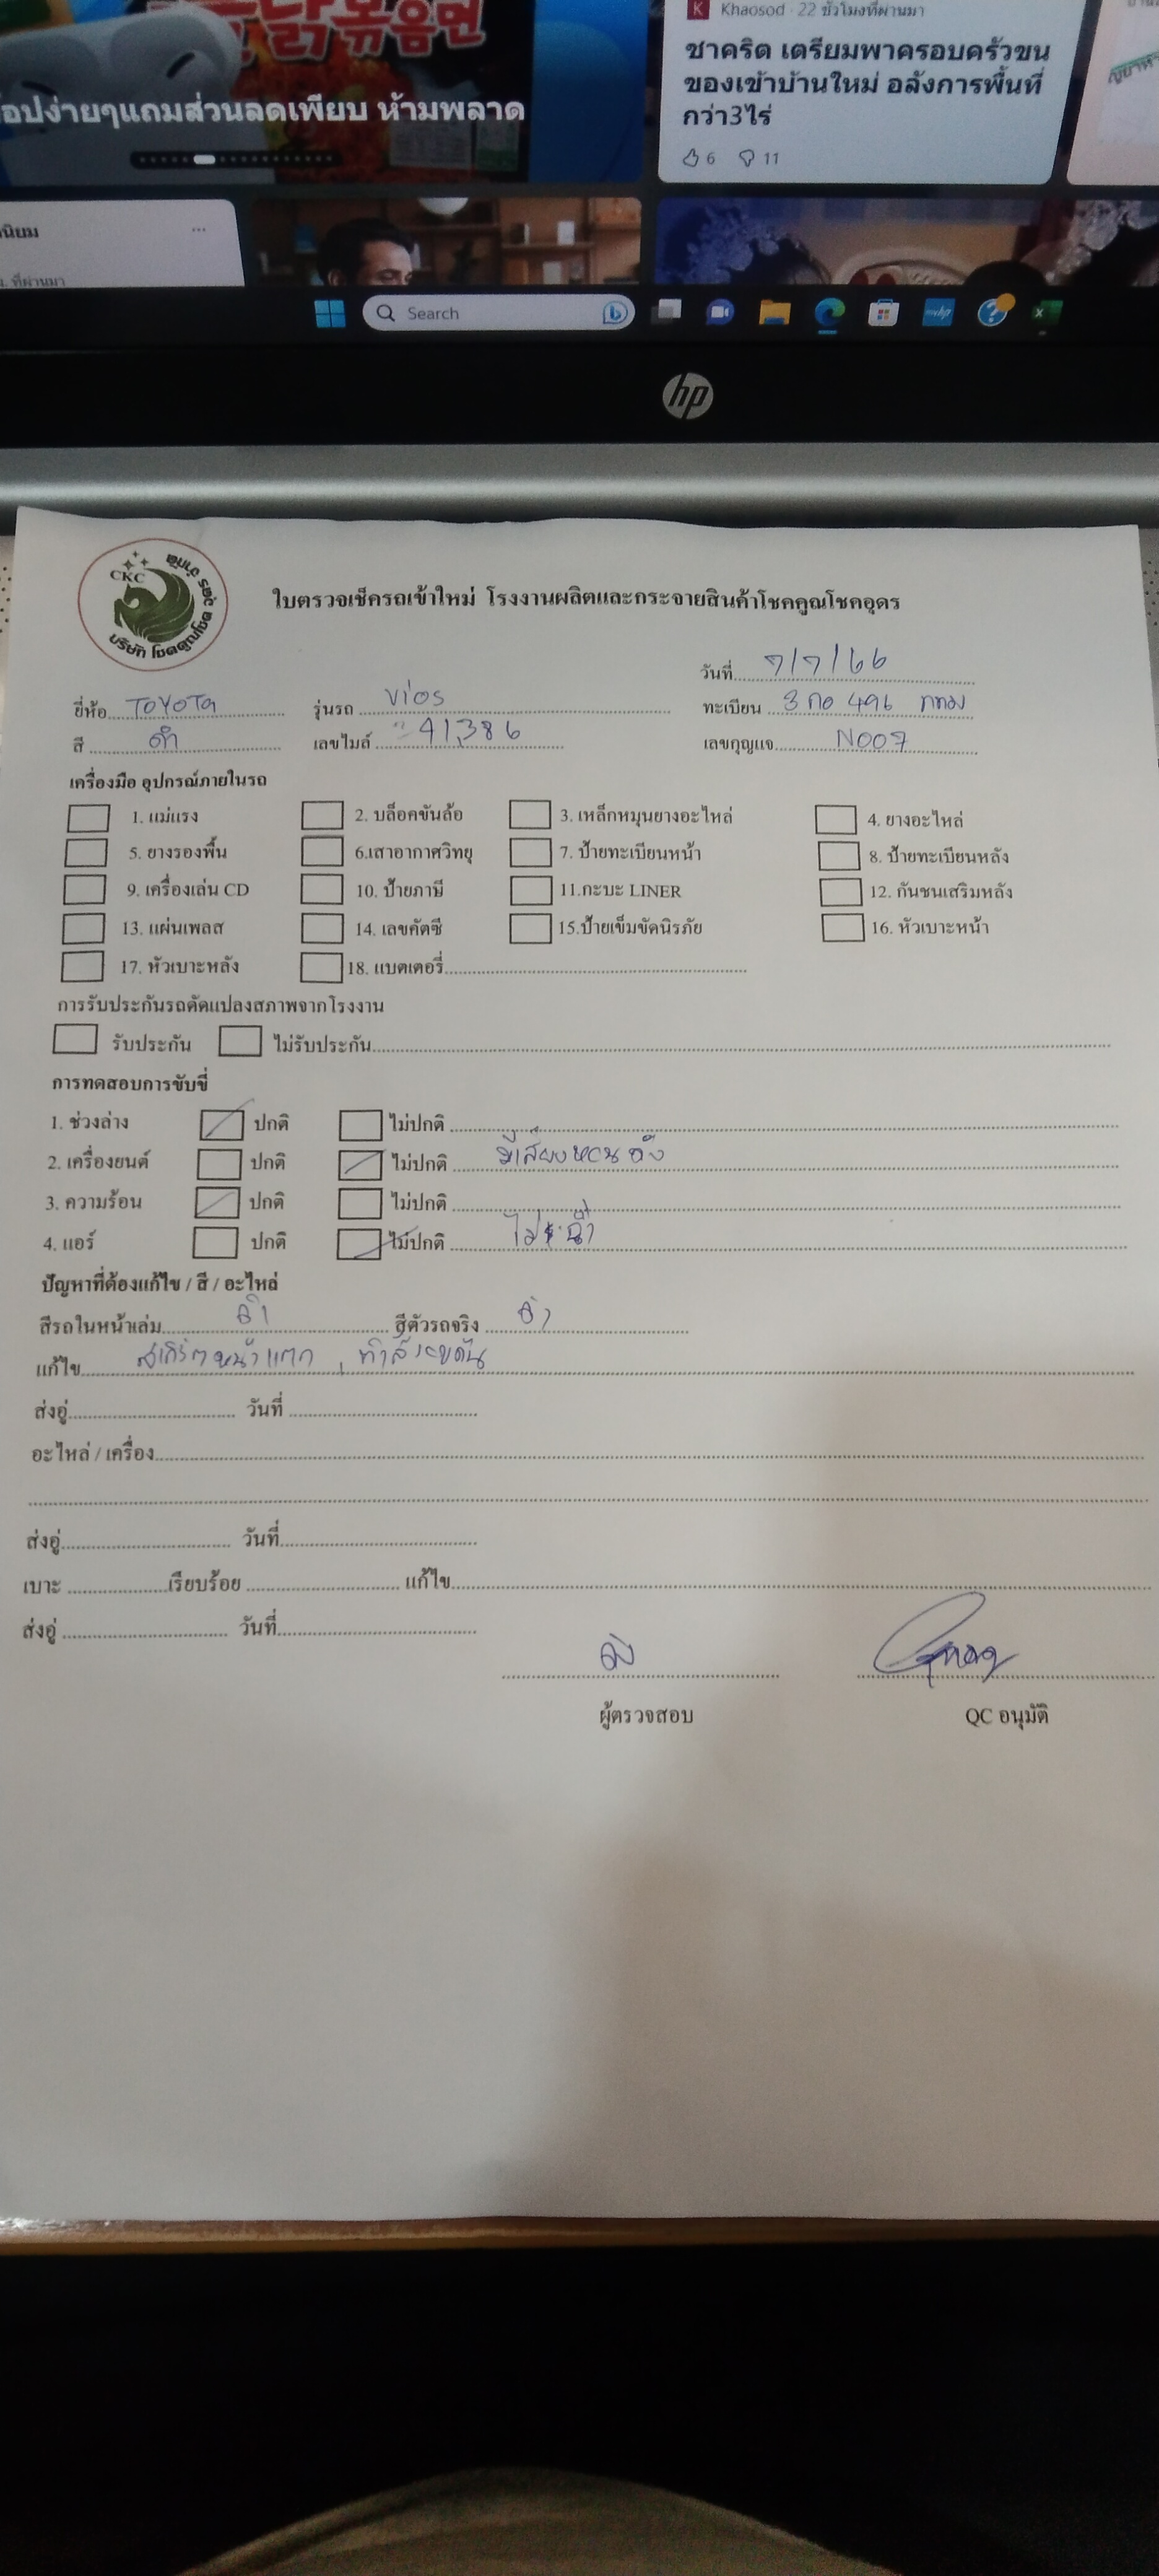 อปง่ายๆแถมส่วนลดเพียบ ห้ามพลาด
K Khaosod · 22 ชั่วโมงที่ผ่านมา
ชาคริต เตรียมพาครอบครัวขน
ของเข้าบ้านใหม่ อลังการพื้นที่
กว่า3ไร่
6 11
นิยม ...
ที่ผ่านมา
Search
hp
CKC
บริษัท โชคคูณโชค อุดร จำกัด
ใบตรวจเช็ครถเข้าใหม่ โรงงานผลิตและกระจายสินค้าโชคคูณโชคอุดร
วันที่ 7/7/66
ยี่ห้อ TOYOTA รุ่นรถ Vios ทะเบียน 3 กอ 496 กทม
สี ดำ เลขไมล์ 41,386 เลขกุญแจ N007
เครื่องมือ อุปกรณ์ภายในรถ
1. แม่แรง 2. บล็อคขันล้อ 3. เหล็กหมุนยางอะไหล่ 4. ยางอะไหล่
5. ยางรองพื้น 6.เสาอากาศวิทยุ 7. ป้ายทะเบียนหน้า 8. ป้ายทะเบียนหลัง
9. เครื่องเล่น CD 10. ป้ายภาษี 11.กะบะ LINER 12. กันชนเสริมหลัง
13. แผ่นเพลส 14. เลขคัตซี 15.ป้ายเข็มขัดนิรภัย 16. หัวเบาะหน้า
17. หัวเบาะหลัง 18. แบตเตอรี่
การรับประกันรถดัดแปลงสภาพจากโรงงาน
รับประกัน ไม่รับประกัน
การทดสอบการขับขี่
1. ช่วงล่าง ปกติ ไม่ปกติ
2. เครื่องยนต์ ปกติ ไม่ปกติ มีเสียงหอนดัง
3. ความร้อน ปกติ ไม่ปกติ
4. แอร์ ปกติ ไม่ปกติ
ปัญหาที่ต้องแก้ไข / สี / อะไหล่
สีรถในหน้าเล่ม ดำ สีตัวรถจริง ดำ
แก้ไข สเกิร์ตหน้าแตก , ทำสีรอบคัน
ส่งอู่ วันที่
อะไหล่ / เครื่อง
ส่งอู่ วันที่
เบาะ เรียบร้อย แก้ไข
ส่งอู่ วันที่
ผู้ตรวจสอบ QC อนุมัติ